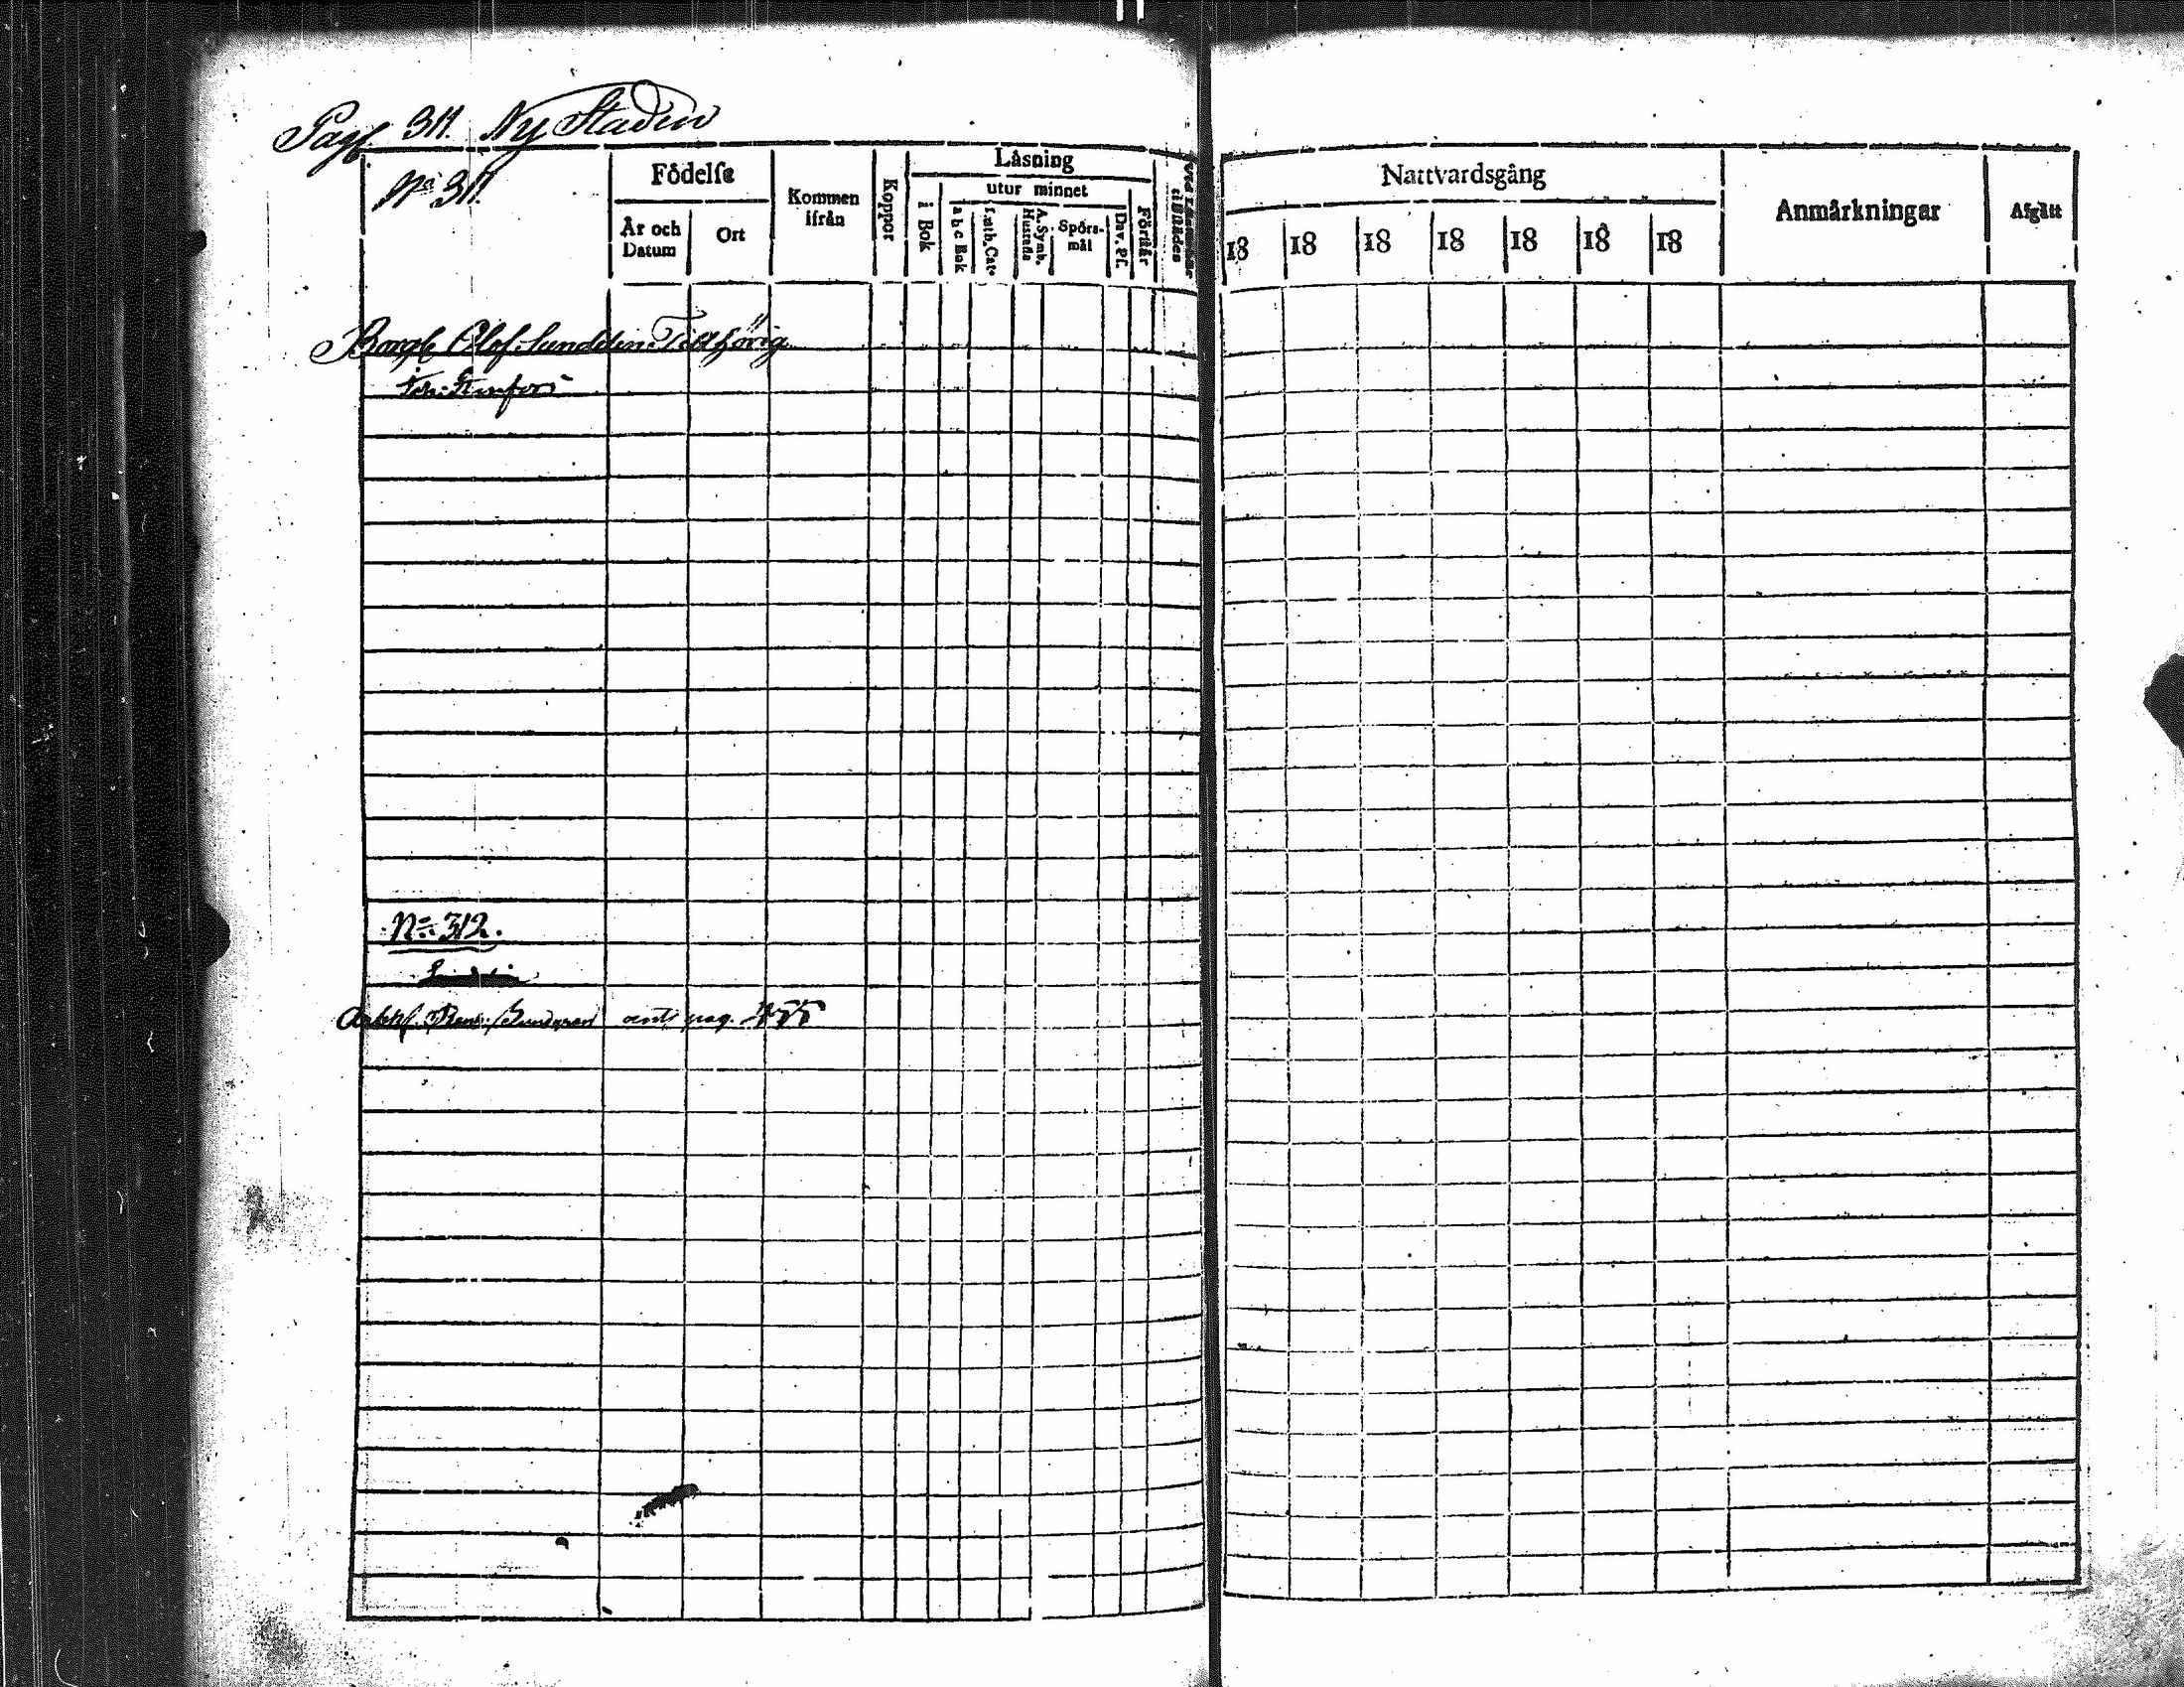 Pag. 311. Ny Staden
No 311.
Födelse
År och Datum
Ort
Kommen ifrån
Koppor
Läsning
i Bok
utur minnet
a b c Bok
Luth. Cat.
A. Symb. Hustafla
Spörsmål
Dav. Ps.
Förstår
Nattvardsgång
18 18 18 18 18 18 18
Anmärkningar
Afgått
Borg. Olof Sundelin Tillhörig
No 312.
pag.